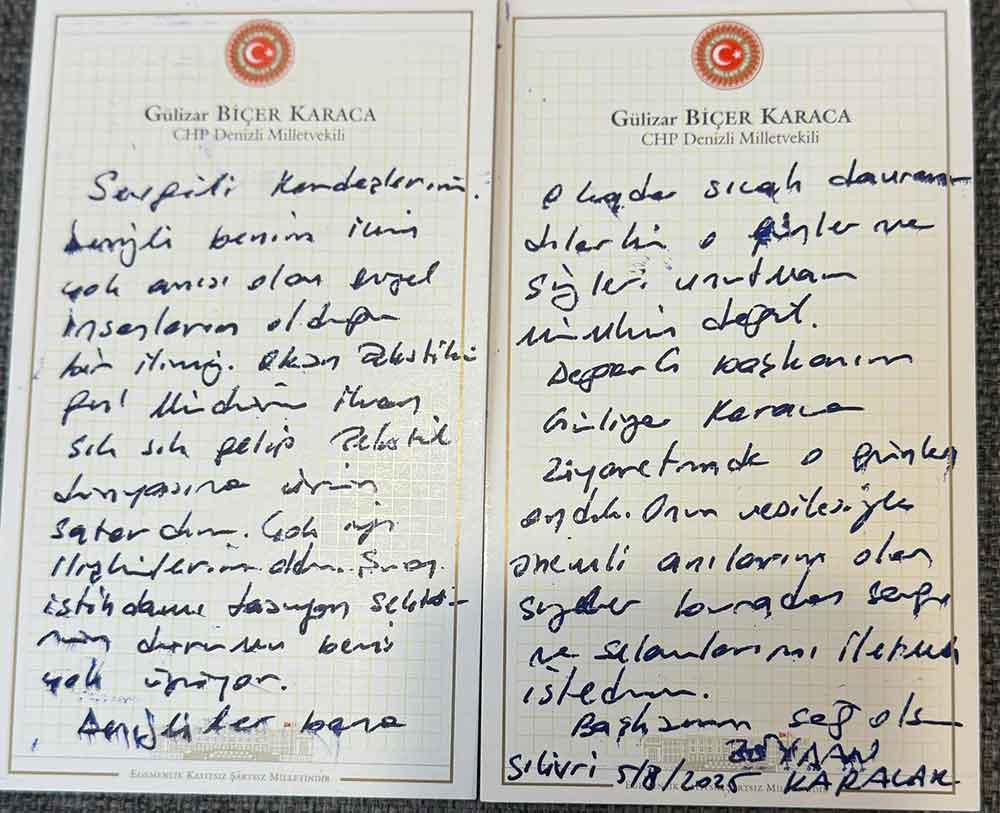 Gülizar BİÇER KARACA
CHP Denizli Milletvekili
Sevgili Kardeşlerim,
Denizli benim için
çok anısı olan güzel
insanların olduğu
bir ilimiz. tekstilin
sık sık gelip tekstil
dünyasına ürün
satardım. Çok iyi
ilişkilerim oldu. Şu an
istihdamı taşıyan sektö-
rün durumu beni
çok üzüyor.
Denizliler bana
EGEMENLİK KAYITSIZ ŞARTSIZ MİLLETİNDİR
Gülizar BİÇER KARACA
CHP Denizli Milletvekili
o kadar sıcak davran-
dılar ki o günler ve
sizleri unutmam
mümkün değil.
Değerli başkanım
Karaca
ziyaretinde o günleri
andık. Onun vesilesiyle
önemli anılarım olan
sizlere buradan sevgi
ve selamlarımı iletmek
istedim.
Başkanım sağ olsun
KARALAR
Silivri 5/8/2025
EGEMENLİK KAYITSIZ ŞARTSIZ MİLLETİNDİR